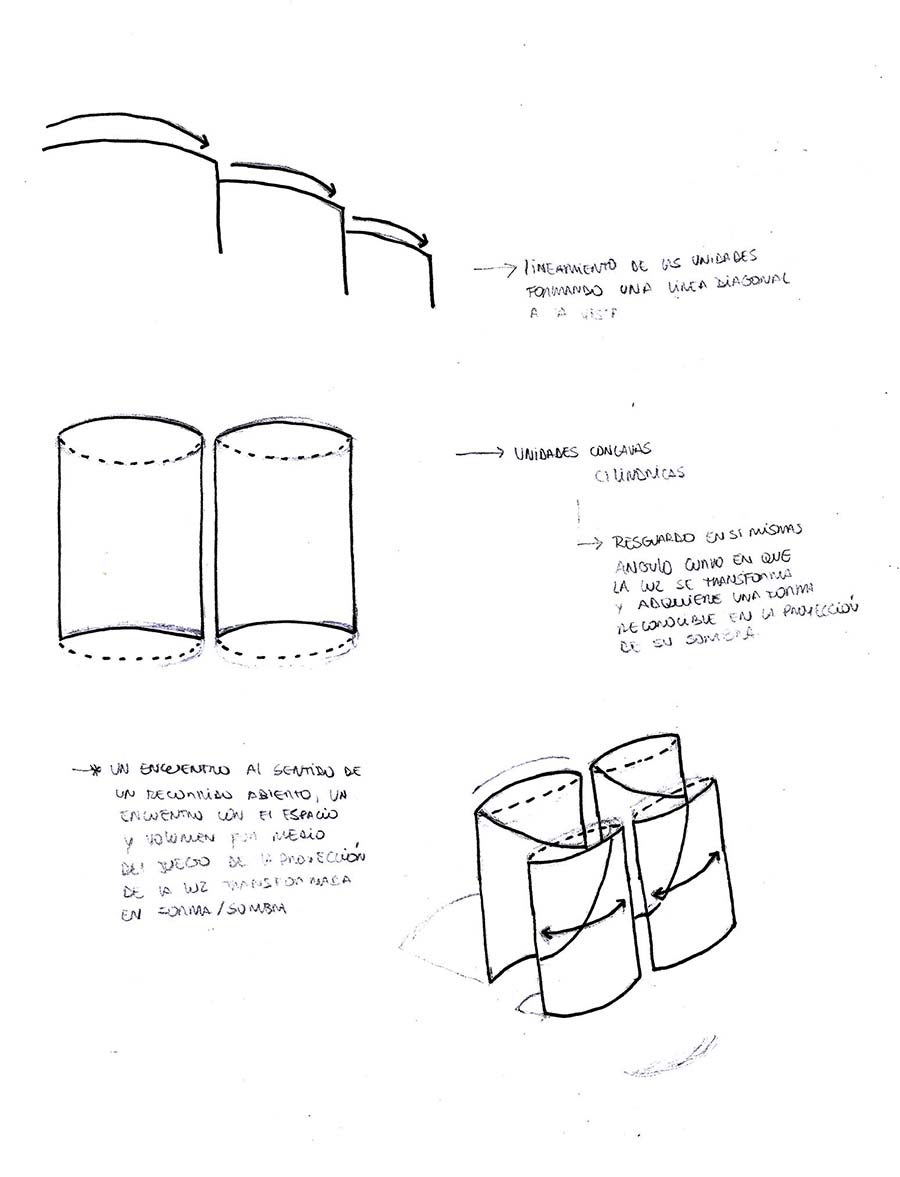 LINEAMIENTO DE LAS UNIDADES
FORMANDO UNA LÍNEA DIAGONAL
A LA VISTA
UNIDADES CONCAVAS
CILÍNDRICAS
RESGUARDO EN SI MISMAS
ANGULO CURVO EN QUE
LA LUZ SE TRANSFORMA
Y ADQUIERE UNA FORMA
RECONOCIBLE EN LA PROYECCIÓN
DE SU SOMBRA
UN ENCUENTRO AL SENTIDO DE
UN RECORRIDO ABIERTO, UN
ENCUENTRO CON EL ESPACIO
Y VOLUMEN POR MEDIO
DEL JUEGO DE LA PROYECCIÓN
DE LA LUZ TRANSFORMADA
EN FORMA/SOMBRA